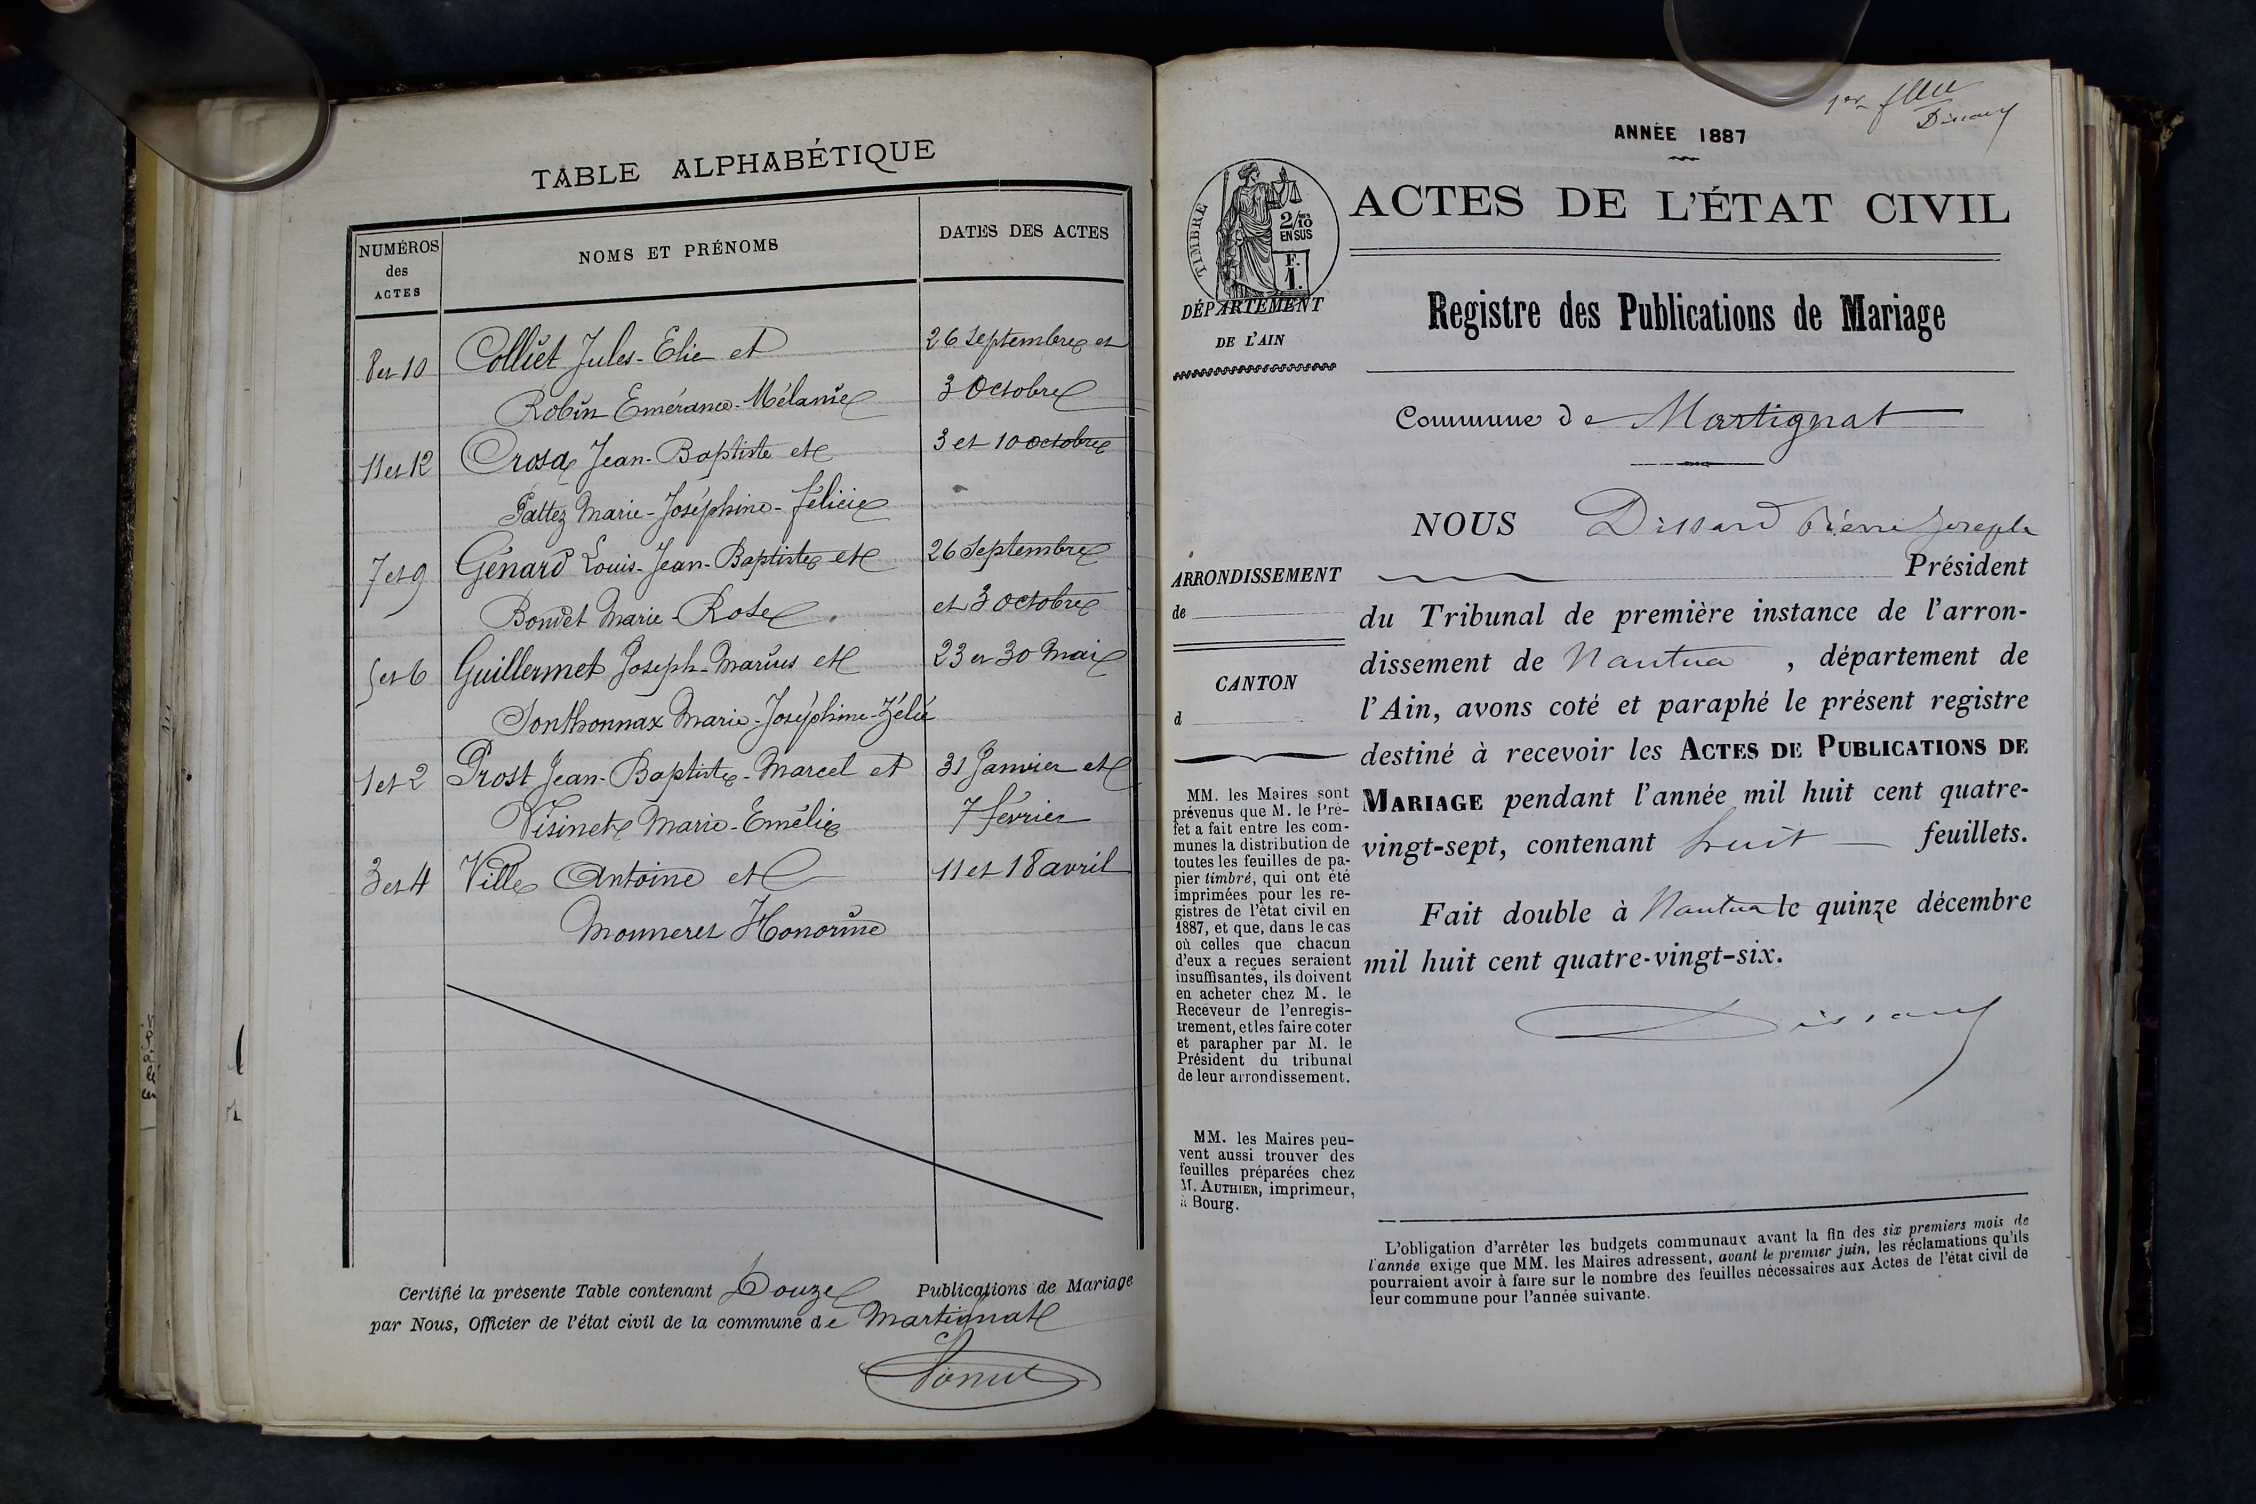 TABLE ALPHABÉTIQUE
NUMÉROS
des
ACTES
NOMS ET PRÉNOMS
DATES DES ACTES
8 et 10 Colliet Jules-Elie et 26 Septembre et
Robin Emérance-Mélanie 3 Octobre
11 et 12 Crosa Jean-Baptiste et 3 et 10 octobre
Pattez Marie-Joséphine-Félicie
7 et 9 Génard Louis-Jean-Baptiste et 26 Septembre
Bondet Marie-Rose et 3 octobre
5 et 6 Guillermet Joseph-Marius et 23 et 30 Mai
Sonthonnax Marie-Joséphine-Zélie
1 et 2 Prost Jean-Baptiste-Marcel et 31 Janvier et
Visinet Marie-Emélie 7 février
3 et 4 Ville Antoine et 11 et 18 avril
Monneret Honorine
Certifié la présente Table contenant Douze Publications de Mariage
par Nous, Officier de l'état civil de la commune de Martignat
1er
Dissard
ANNÉE 1887
TIMBRE
2/10
EN SUS
F.
1.
ACTES DE L'ÉTAT CIVIL
DÉPARTEMENT
DE L'AIN
Registre des Publications de Mariage
Commune de Martignat
NOUS Dissard Pierre Joseph
Président
du Tribunal de première instance de l'arron-
dissement de Nantua, département de
l'Ain, avons coté et paraphé le présent registre
destiné à recevoir les ACTES DE PUBLICATIONS DE
MARIAGE pendant l'année mil huit cent quatre-
vingt-sept, contenant huit feuillets.
Fait double à Nantua le quinze décembre
mil huit cent quatre-vingt-six.
Dissard
ARRONDISSEMENT
de
CANTON
d
MM. les Maires sont
prévenus que M. le Pré-
fet a fait entre les com-
munes la distribution de
toutes les feuilles de pa-
pier timbré, qui ont été
imprimées pour les re-
gistres de l'état civil en
1887, et que, dans le cas
où celles que chacun
d'eux a reçues seraient
insuffisantes, ils doivent
en acheter chez M. le
Receveur de l'enregis-
trement, et les faire coter
et parapher par M. le
Président du tribunal
de leur arrondissement.
MM. les Maires peu-
vent aussi trouver des
feuilles préparées chez
M. AUTHIER, imprimeur,
à Bourg.
L'obligation d'arrêter les budgets communaux avant la fin des six premiers mois de
l'année exige que MM. les Maires adressent, avant le premier juin, les réclamations qu'ils
pourraient avoir à faire sur le nombre des feuilles nécessaires aux Actes de l'état civil de
leur commune pour l'année suivante.